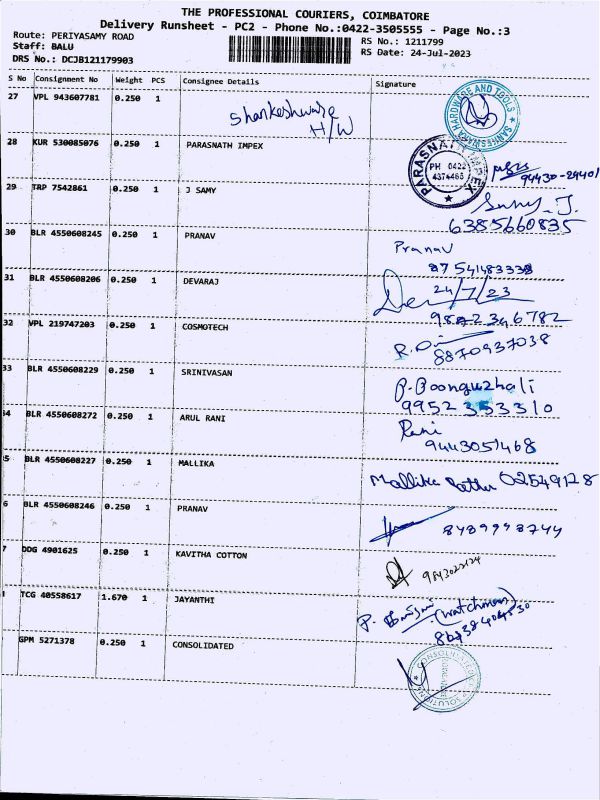 THE PROFESSIONAL COURIERS, COIMBATORE
Delivery Runsheet - PC2 - Phone No.:0422-3505555 - Page No.:3
Route: PERIYASAMY ROAD
Staff: BALU
DRS No.: DCJB121179903
RS No.: 1211799
RS Date: 24-Jul-2023
S No Consignment No Weight PCS Consignee Details Signature
27 VPL 943607781 0.250 1 Shankeshwara H/W
SANKESHWARA HARDWARE AND TOOLS
28 KUR 530085076 0.250 1 PARASNATH IMPEX
PARASNATH IMPEX
PH 0422
4374465
94430-29401
29 TRP 7542861 0.250 1 J SAMY
6385660835
30 BLR 4550608245 0.250 1 PRANAV Pranav
87541483338
31 BLR 4550608206 0.250 1 DEVARAJ 24/7/23
9842346782
32 VPL 219747203 0.250 1 COSMOTECH
8870937038
33 BLR 4550608229 0.250 1 SRINIVASAN P. Poonguzhali
9952353310
34 BLR 4550608272 0.250 1 ARUL RANI Rani
9443051468
5 BLR 4550608227 0.250 1 MALLIKA Mallika
6 BLR 4550608246 0.250 1 PRANAV 8489998744
7 DDG 4901625 0.250 1 KAVITHA COTTON
TCG 40558617 1.670 1 JAYANTHI (watchman)
GPM 5271378 0.250 1 CONSOLIDATED